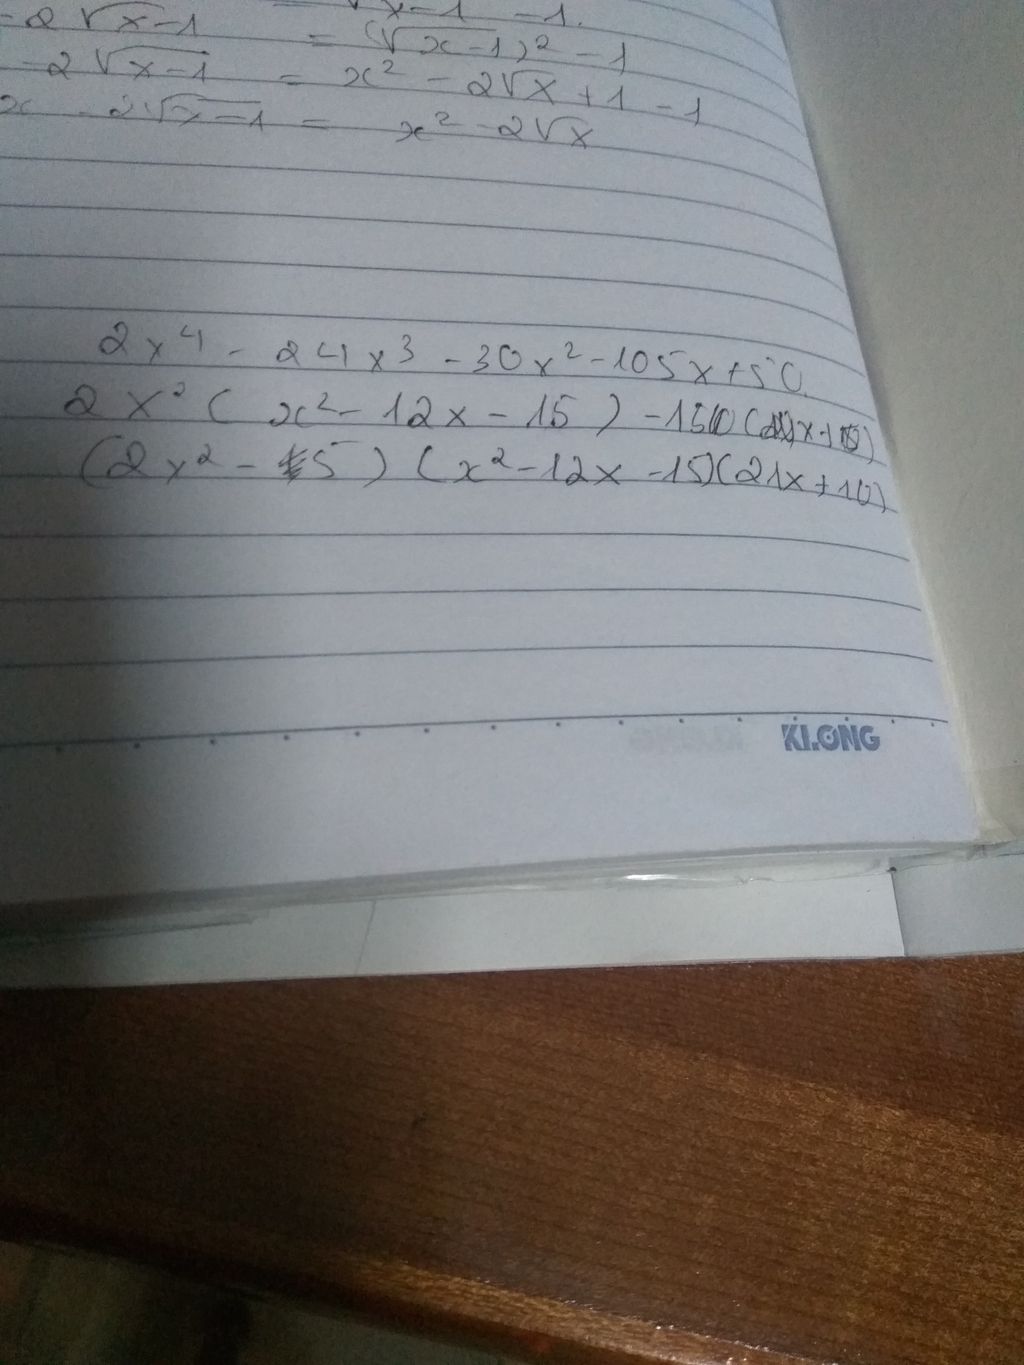 -2√x-1 = √x-1 -1.
-2√x-1 = (√x-1)² - 1
-2√x-1 = x² - 2√x + 1 - 1
x - 2√x-1 = x² - 2√x
2x⁴ - 24x³ - 30x² - 105x + 50
2x² ( x² - 12x - 15 ) -
(2x² - 5) (x² - 12x - 15)(21x + 10)
KLONG